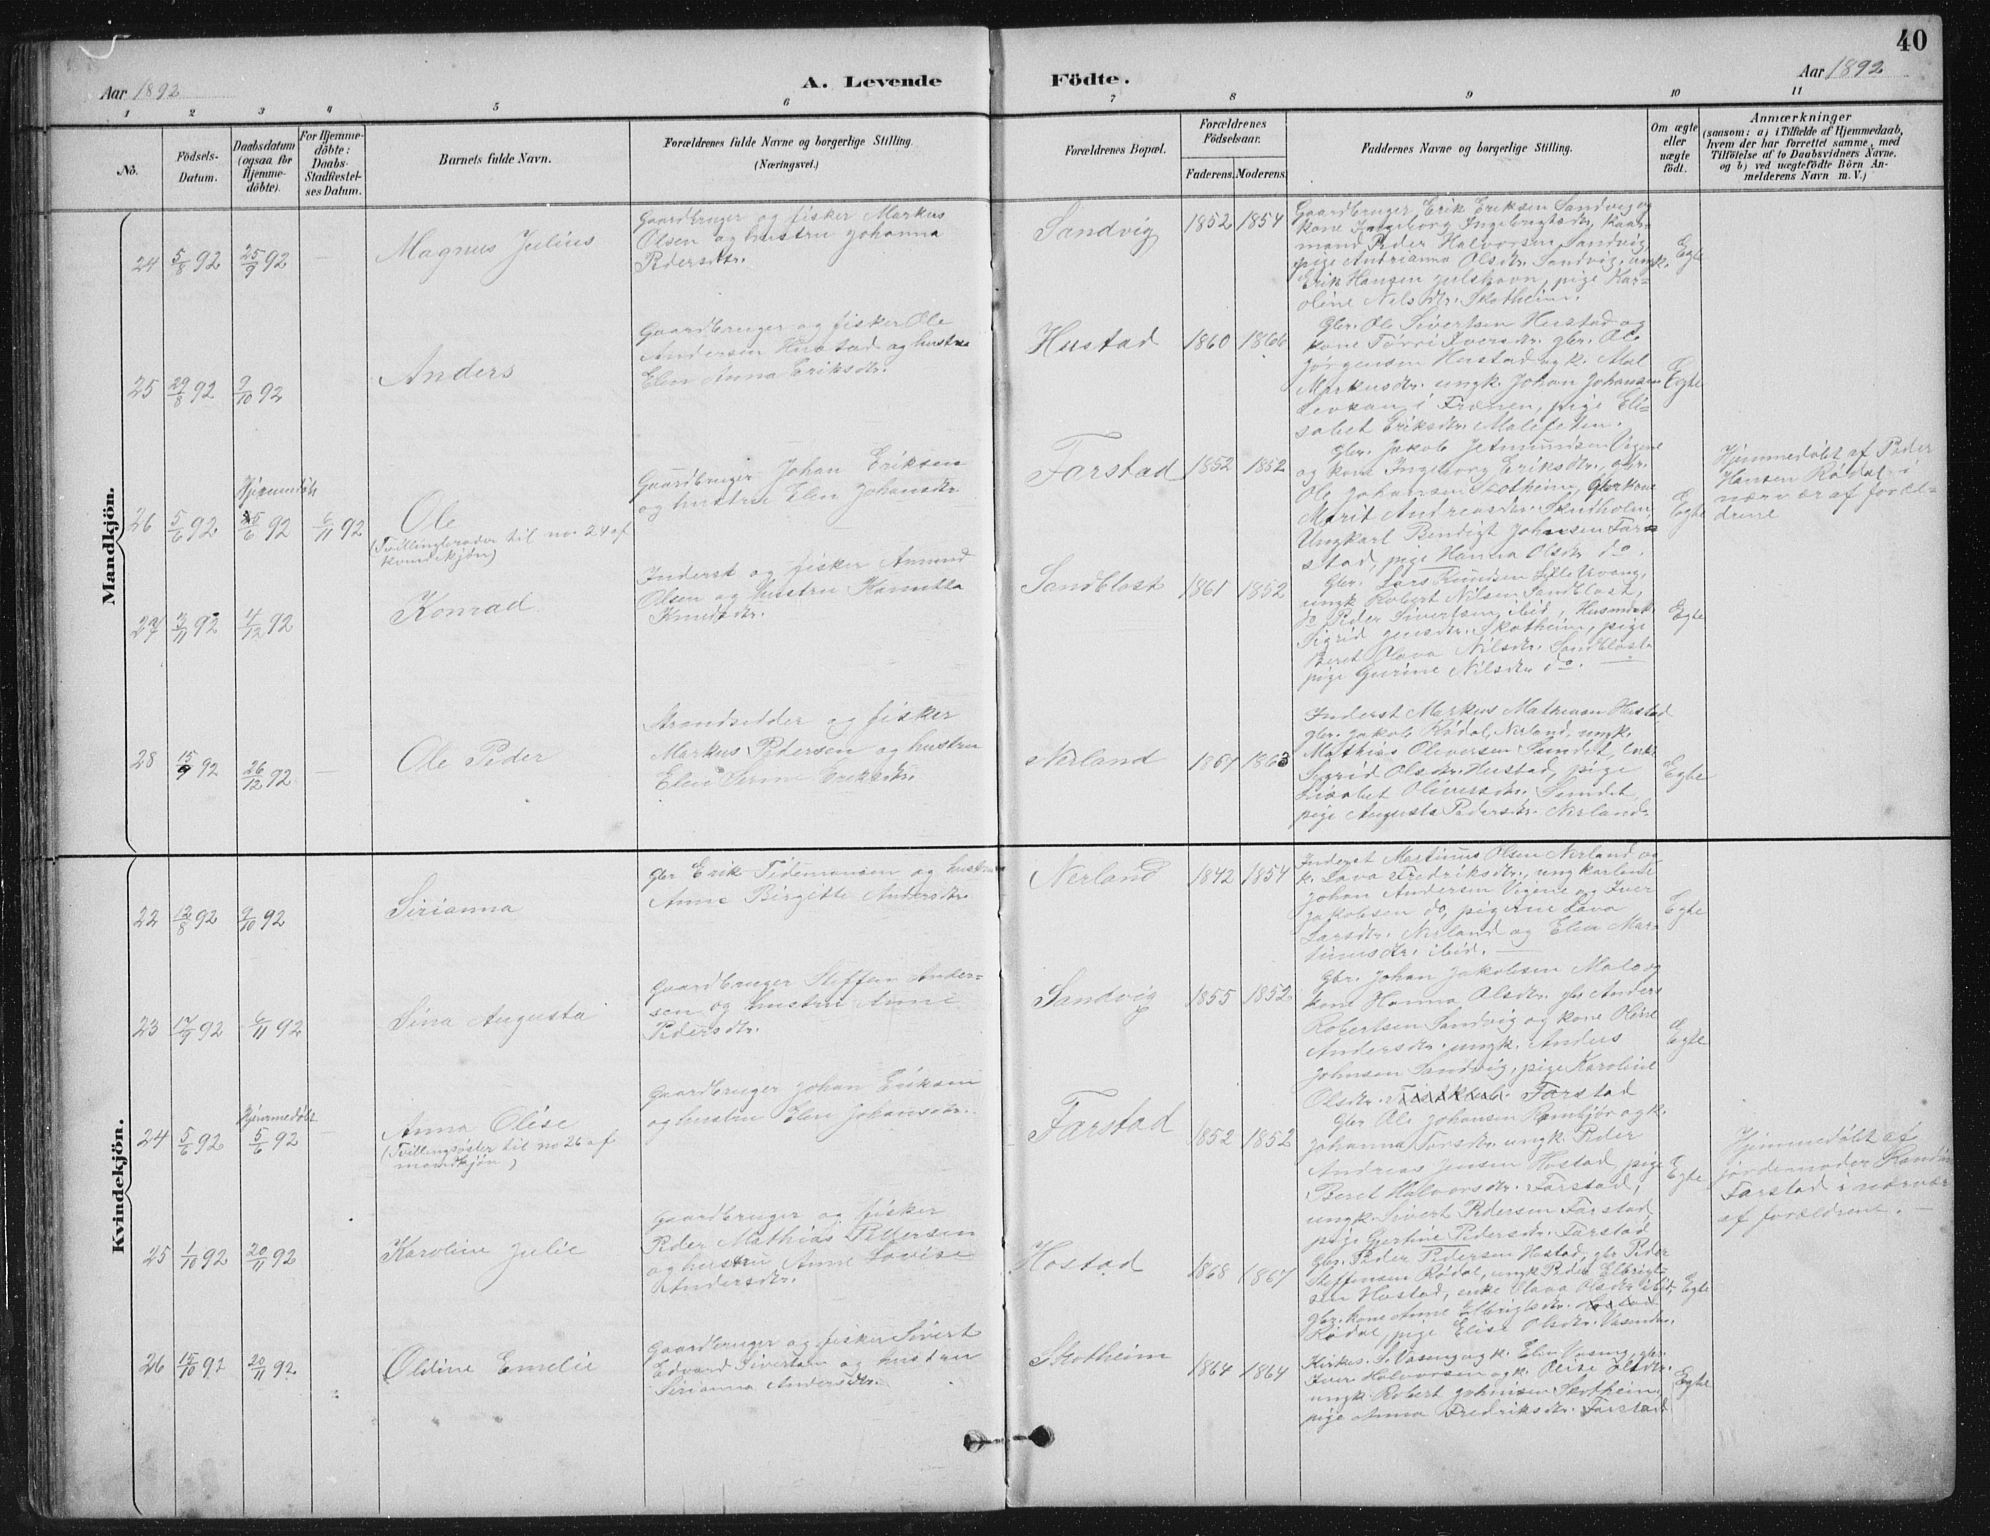 40
Aar 1892
A. Levende
Födte.
Aar 1892
1 2 3 4 5 6 7 8 9 10 11
No.
Födsels-
Datum.
Daabsdatum
(ogsaa for
Hjemme-
döbte).
For Hjemme-
döbte:
Daabs-
Stadfæstel-
ses Datum.
Barnets fulde Navn.
Forældrenes fulde Navne og borgerlige Stilling.
(Næringsvei.)
Forældrenes Bopæl.
Forældrenes
Födselsaar.
Faderens. Moderens.
Faddernes Navne og borgerlige Stilling.
Om ægte
eller
uægte
födt.
Anmærkninger
(saasom: a) i Tilfælde af Hjemmedaab,
hvem der har forrettet samme, med
Tilföielse af to Daabsvidners Navne.
og b) ved uægtefödte Börn An-
melderens Navn m. V.)
Mandkjön.
24 5/8 92 25/9 92 —
Magnus Julius
Gaardbruger og fisker Markus
Olsen og hustru Johanna
Pedersdtr.
Sandvig
1852 1854
Gaardbruger Erik Eriksen Sandvig og
kone Ingeborg Ingebrigtsdtr, Kaar-
mand Peder Halvorsen Sandvig,
pige Andrianna Olsdtr. Sandvig, ungk.
Erik Hansen Julshavn, pige Kar-
oline Nilsdtr. Skotheim.
Ægte
25 29/8 92 9/10 92
Anders
Gaardbruger og fisker Ole
Andersen Hustad og hustru
Elen Anna Eriksdtr.
Hustad
1860 1866
Gbr. Ole Sivertsen Hustad og
kone Iversdtr. gbr. Ole
Jørgensen Hustad og k.
Markusdtr. ungk. Johan Johansen
i Frænen, pige Eli-
sabet Eriksdtr. Malefeten.
Ægte
26 5/6 92
Hjemmedøbt
25/6 92 6/11 92
Ole
(Tvillingbroder til no. 24 af
kvindekjøn)
Gaardbruger Johan Eriksen
og hustru Elen Johansdtr.
Farstad
1852 1852
Gbr. Jakob Jetmundsen Vigene
og kone Ingeborg Eriksdtr., gbr.
Ole Johansen Skotheim, Gbrkone
Marit Andreasdtr. Skudholm,
Ungkarl Bendigt Johnsen Far-
stad, pige Hanna Olsdtr. do.
Ægte
Hjemmedøbt af Peder
Hansen Rødal i
nærvær af foræl-
drene
27 3/11 92 4/12 92
Konrad
Inderst og fisker Amund
Olsen og hustru Kamilla
Knudsdtr.
Sandblost
1861 1852
Gbr. Lars Knudsen Lille
ungk. Robert Nilsen Sandblost,
do Peder Sivertsen, ibid, Husmdtr.
Sigrid Jensdtr. Skotheim, pige
Beret Olava Nilsdtr. Sandblost
pige Gurine Nilsdtr. do.
Ægte
28 15/9 92 26/12 92 —
Ole Peder
Strandsidder og fisker
Markus Petersen og hustru
Elen Eriksdtr.
Nerland
1867 1863
Inderst Markus Mathisen Hustad
gbr. Jakob Rødal, Nerland, ungk.
Mathias Oliversen Sundet, enke
Sigrid Olsdtr. Hustad, pige
Lisabet Oliversdtr. Sundet,
pige Augusta Pedersdtr. Nerland.
Ægte
Kvindekjön.
22 12/8 92 9/10 92
Sirianna
Gbr Erik Tidemansen og hustru
Anne Birgitte Andersdtr.
Nerland
1842 1854
Inderst Martinus Olsen Nerland og
k. Lava Fredriksdtr., ungkarlene
Johan Andersen Vigene og Iver
Jakobsen do, pigerne Lava
Larsdtr. Nerland og Elen Mar-
tinusdtr. ibid.
Ægte
23 17/9 92 6/11 92
Sina Augusta
Gaardbruger Steffen Ander-
sen og hustru Anne
Pedersdtr.
Sandvig
1855 1852
Gbr. Johan Jakobsen Male og
kone Hanna Olsdtr. gbr Anders
Robertsen Sandvig og kone Oline
Andersdtr. ungk. Anders
Johnsen Sandvig, pige Karoline
Olsdtr. Farstad
Ægte
24 5/6 92
Hjemmedøbt
5/6 92 —
Anna Olise
(Tvillingsøster til no 26 af
mandkjøn)
Gaardbruger Johan Eriksen
og hustru Elen Johansdtr.
Farstad
1852 1852
Gbr Ole Johansen og k.
Johanna ungk. Peder
Andreas Jensen Hostad, pige
Beret Halvorsdtr. Farstad,
ungk. Sivert Pedersen Farstad
pige Gjertine Pedersdtr. Farstad
Ægte
Hjemmedøbt af
jordemoder
Farstad i nærvær
af forældrene.
25 1/10 92 20/11 92
Karoline Julie
Gaardbruger og fisker
Peder Mathias Pettersen
og hustru Anne Lovise
Andersdtr.
Hostad
1868 1867
Gbr. Peder Pedersen Hostad, gbr Peder
Steffensen Rødal, ungk. Peder Elbrigt-
sen Hostad, enke Olava Olsdtr ibid,
Gbr. kone Anne Elbrigtsdtr. Hostad
Rødal, pige Elise Olsdtr.
Ægte
26 15/10 92 20/11 92
Oldine Emelie
Gaardbruger og fisker Sivert
Edvard Sivertsen og hustru
Sirianna Andersdtr.
Skotheim
1864 1864
Kirkes. S. Vasing og k. Elen Vasing, gbr.
Iver Halvorsen og k. Olise Olsdtr.
ungk. Robert Johnsen Skotheim,
pige Anna Fredriksdtr. Farstad
Ægte